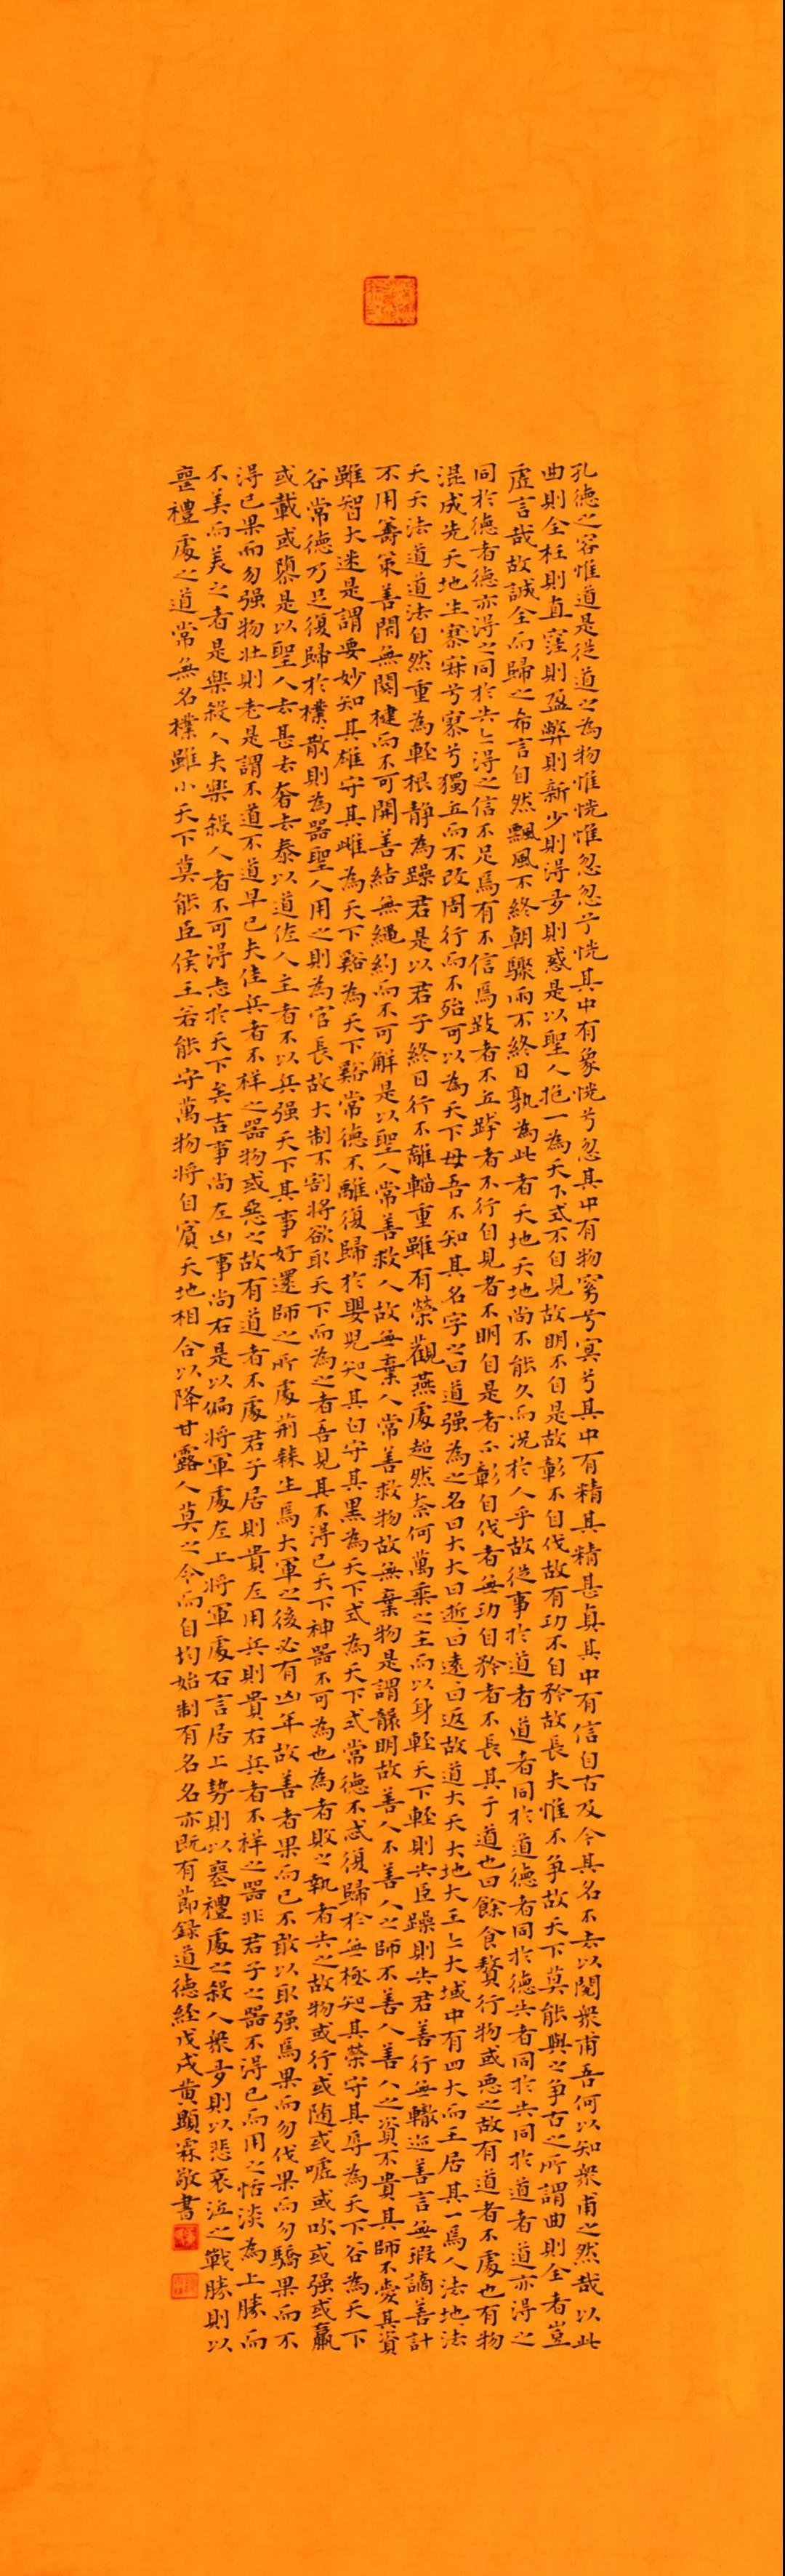 孔德之容惟道是從道之為物惟恍惟忽忽兮恍其中有象恍兮忽其中有物窈兮冥兮其中有精其精甚真其中有信自古及今其名不去以閱衆甫吾何以知衆甫之然哉以此
曲則全枉則直窪則盈弊則新少則得多則惑是以聖人抱一為天下式不自見故明不自是故彰不自伐故有功不自矜故長夫惟不爭故天下莫能與之爭古之所謂曲則全者豈
虛言哉故誠全而歸之希言自然飄風不終朝驟雨不終日孰為此者天地天地尚不能久而况於人乎故從事於道者道者同於道德者同於德失者同於失同於道者道亦得之
同於德者德亦得之同於失者得之信不足焉有不信焉跂者不立跨者不行自見者不明自是者不彰自伐者無功自矜者不長其于道也曰餘食贅行物或惡之故有道者不處也有物
混成先天地生寂寞兮寥兮獨立而不改周行而不殆可以為天下母吾不知其名字之曰道强為之名曰大大曰逝曰遠曰返故道大天大地大王亠大域中有四大而王居其一焉人法地法
天天法道道法自然重為輕根静為躁君是以君子終日行不離輜重雖有榮觀燕處超然柰何萬乘之主而以身輕天下輕則失臣躁則失君善行無轍迹善言無瑕謫善計
不用籌策善閉無關楗而不可開善結無繩約而不可解是以聖人常善救人故無棄人常善救物故無棄物是謂襲明故善人不善人之師不善人善人之資不貴其師不愛其資
雖智大迷是謂要妙知其雄守其雌為天下谿為天下谿常德不離復歸於嬰兒知其白守其黑為天下式為天下式常德不忒復歸於無極知其榮守其辱為天下谷為天下
谷常德乃足復歸於樸散則為器聖人用之則為官長故大制不割將欲取天下而為之者吾見其不得已天下神器不可為也為者敗之執者失之故物或行或随或噓或吹或强或羸
或載或隳是以聖人去甚去奢去泰以道佐人主者不以兵强天下其事好還師之所處荆棘生焉大軍之後必有凶年故善者果而已不敢以取强焉果而勿伐果而勿驕果而不
得已果而勿强物壯則老是謂不道不道早已夫佳兵者不祥之器物或惡之故有道者不處君子居則貴左用兵則貴右兵者不祥之器非君子之器不得已而用之恬淡為上勝而
不美而美之者是樂殺人夫樂殺人者不可得志於天下矣吉事尚左凶事尚右是以偏將軍處左上將軍處右言居上勢則以喪禮處之殺人衆多則以悲哀泣之戰勝則以
喪禮處之道常無名樸雖小天下莫能臣侯王若能守萬物將自賓天地相合以降甘露人莫之令而自均始制有名名亦既有節錄道德經戊戌黄顯霖敬書